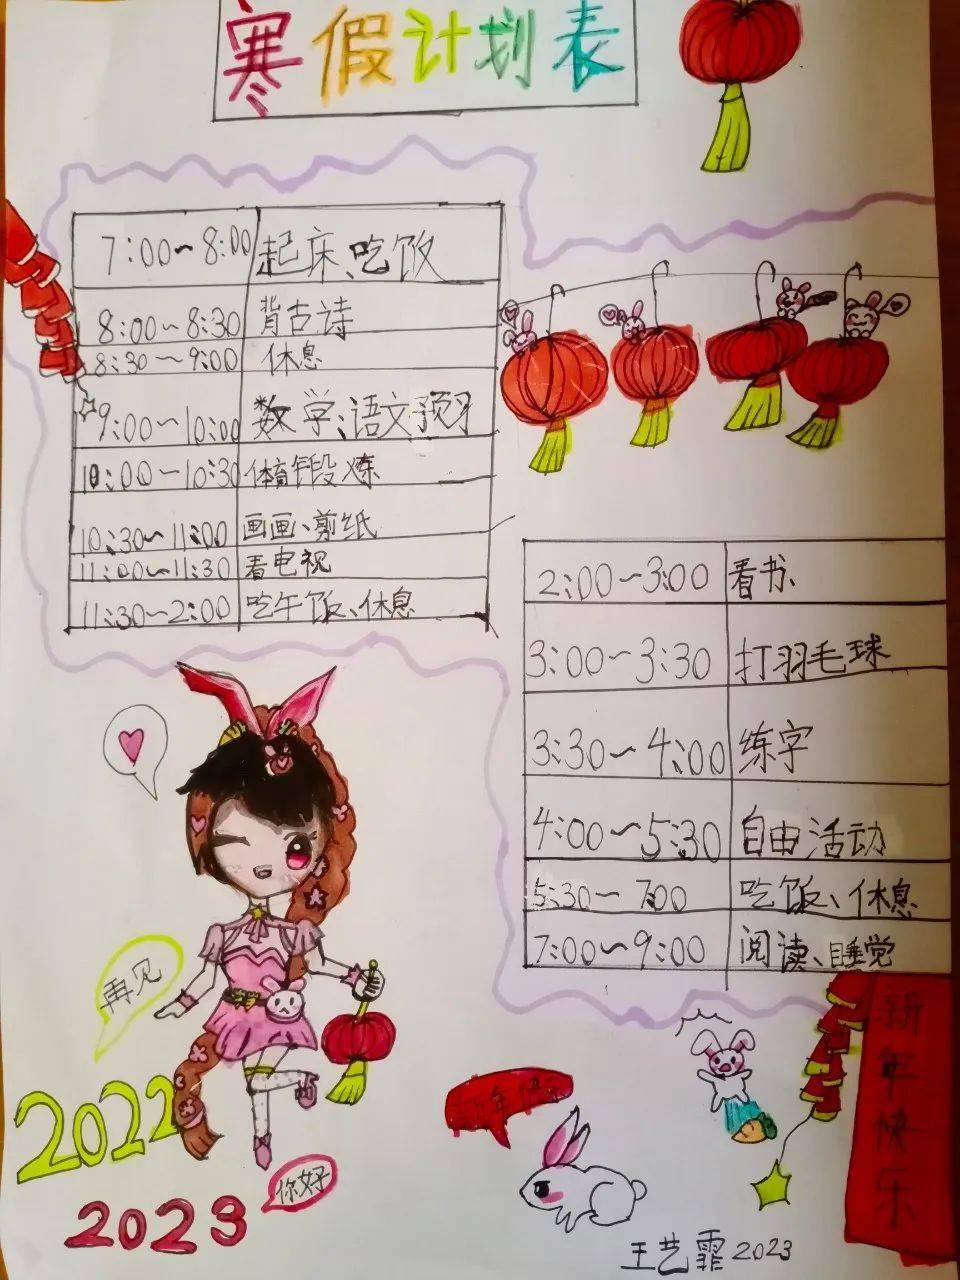 寒假计划表
7:00~8:00 起床、吃饭
8:00~8:30 背古诗
8:30~9:00 休息
9:00~10:00 数学、语文预习
10:00~10:30 体育锻炼
10:30~11:00 画画、剪纸
11:00~11:30 看电视
11:30~2:00 吃午饭、休息
2:00~3:00 看书、
3:00~3:30 打羽毛球
3:30~4:00 练字
4:00~5:30 自由活动
5:30~7:00 吃饭、休息
7:00~9:00 阅读、睡觉
再见
2022
你好
2023
新年快乐
新年快乐
王艺霏2023